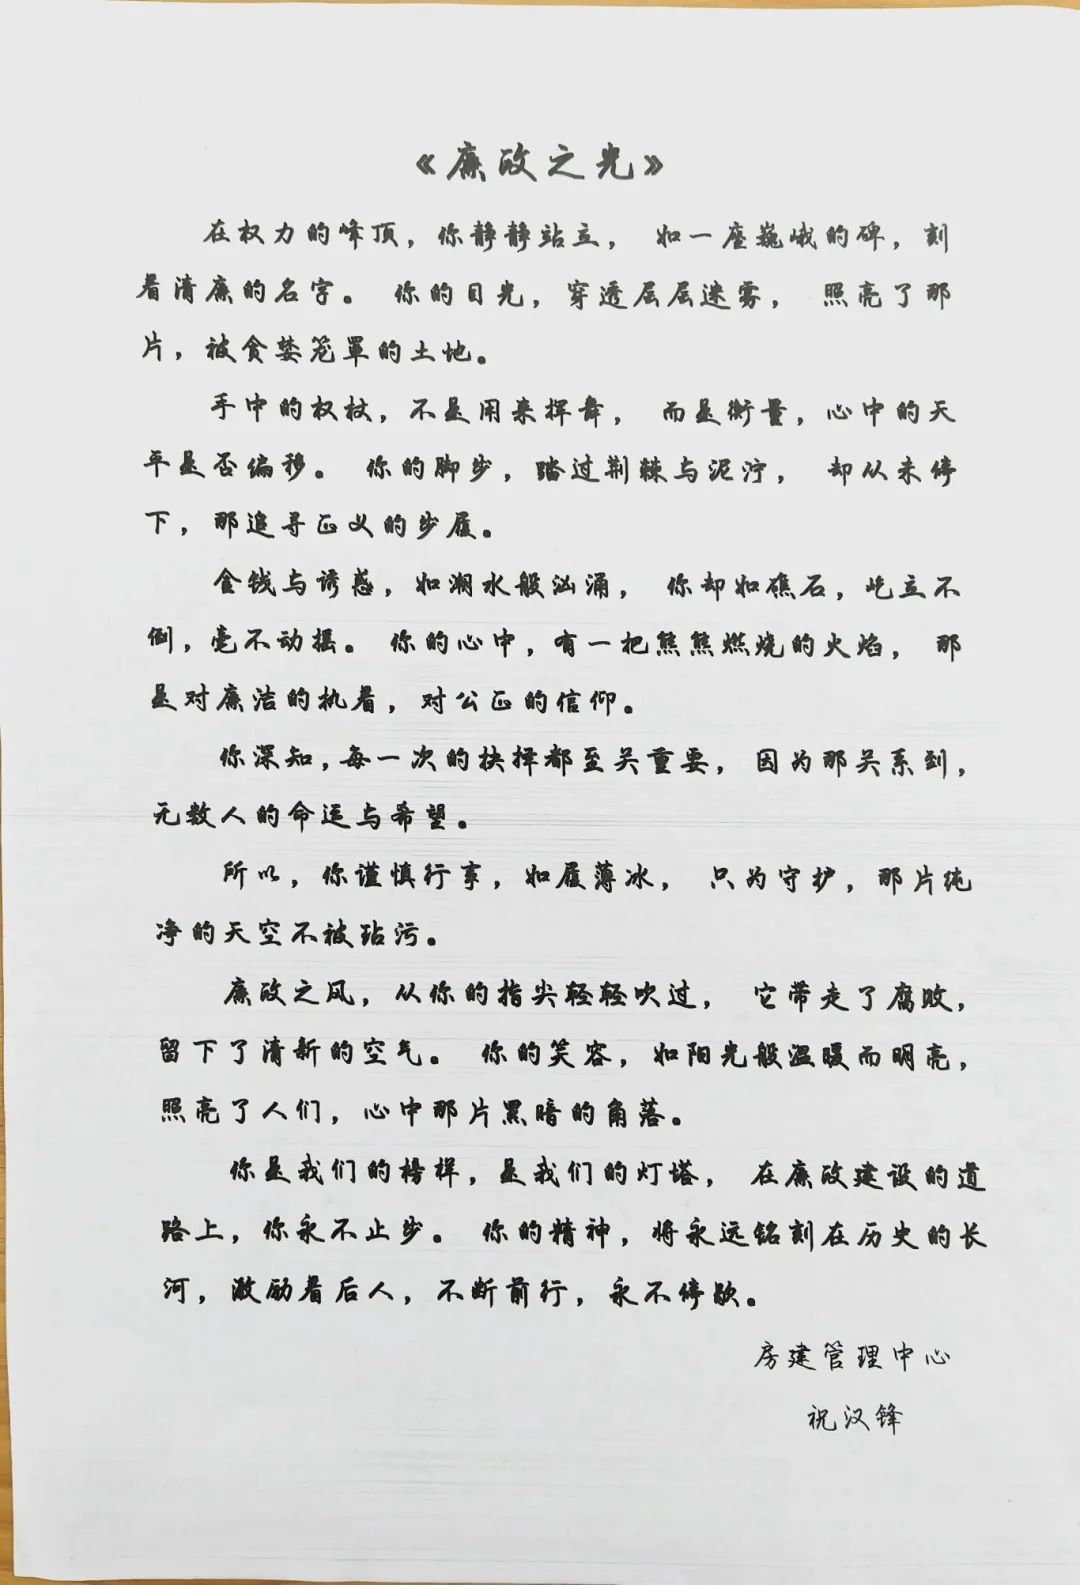 《廉政之光》
在权力的峰顶，你静静站立， 如一座巍峨的碑，刻
着清廉的名字。 你的目光，穿透层层迷雾， 照亮了那
片，被贪婪笼罩的土地。
手中的权杖，不是用来挥舞， 而是衡量，心中的天
平是否偏移。 你的脚步，踏过荆棘与泥泞， 却从未停
下，那追寻正义的步履。
金钱与诱惑，如潮水般汹涌， 你却如礁石，屹立不
倒，毫不动摇。 你的心中，有一把熊熊燃烧的火焰， 那
是对廉洁的执着，对公正的信仰。
你深知，每一次的抉择都至关重要，因为那关系到，
无数人的命运与希望。
所以，你谨慎行事，如履薄冰， 只为守护，那片纯
净的天空不被玷污。
廉政之风，从你的指尖轻轻吹过， 它带走了腐败，
留下了清新的空气。 你的笑容，如阳光般温暖而明亮，
照亮了人们，心中那片黑暗的角落。
你是我们的榜样，是我们的灯塔， 在廉政建设的道
路上，你永不止步。 你的精神，将永远铭刻在历史的长
河，激励着后人，不断前行，永不停歇。
房建管理中心
祝汉锋